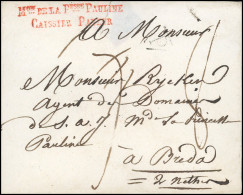 Mon DE LA Psse PAULINE
CAISSIER PAYEUR
A Monsieur
Monsieur Ryckin
Agent des Domaines
de S. A. I. Mde la Princesse
Pauline
à Breda